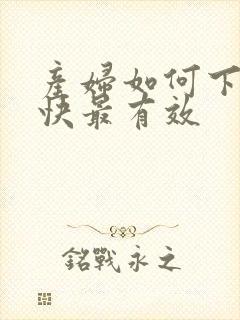 產婦如何下
快最有效
銘戰永之